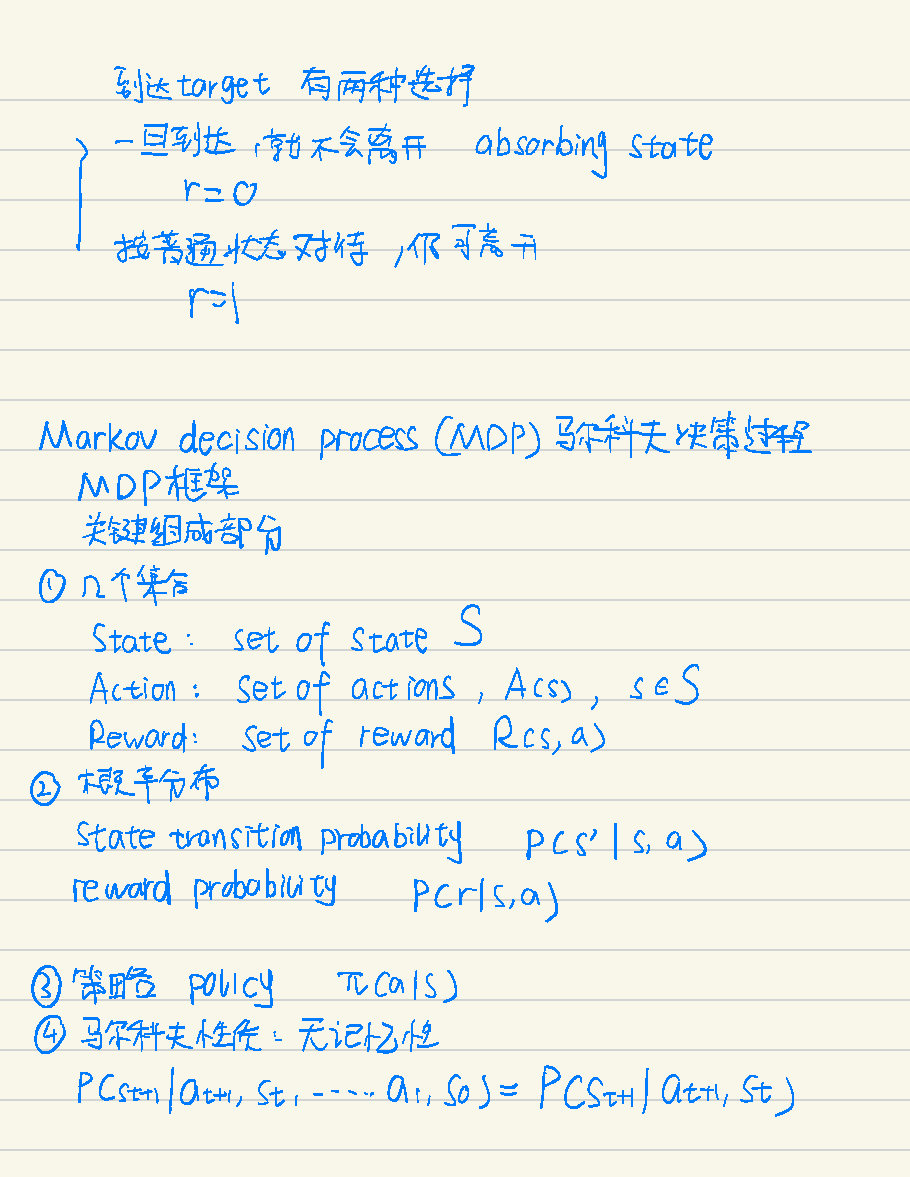 到达target 有两种选择
一旦到达,就不会离开 absorbing state
r=0
按普通状态对待,仍可离开
r=1
Markov decision process (MDP) 马尔科夫决策过程
MDP框架
关键组成部分
① 几个集合
State: set of state S
Action: set of actions, A(s), s∈S
Reward: set of reward R(s,a)
② 概率分布
State transition probability P(s'|s,a)
reward probability P(r|s,a)
③ 策略 policy π(a|s)
④ 马尔科夫性质:无记忆性
P(s_{t+1}|a_{t+1}, s_t, ······ a_1, s_0) = P(s_{t+1}|a_{t+1}, s_t)